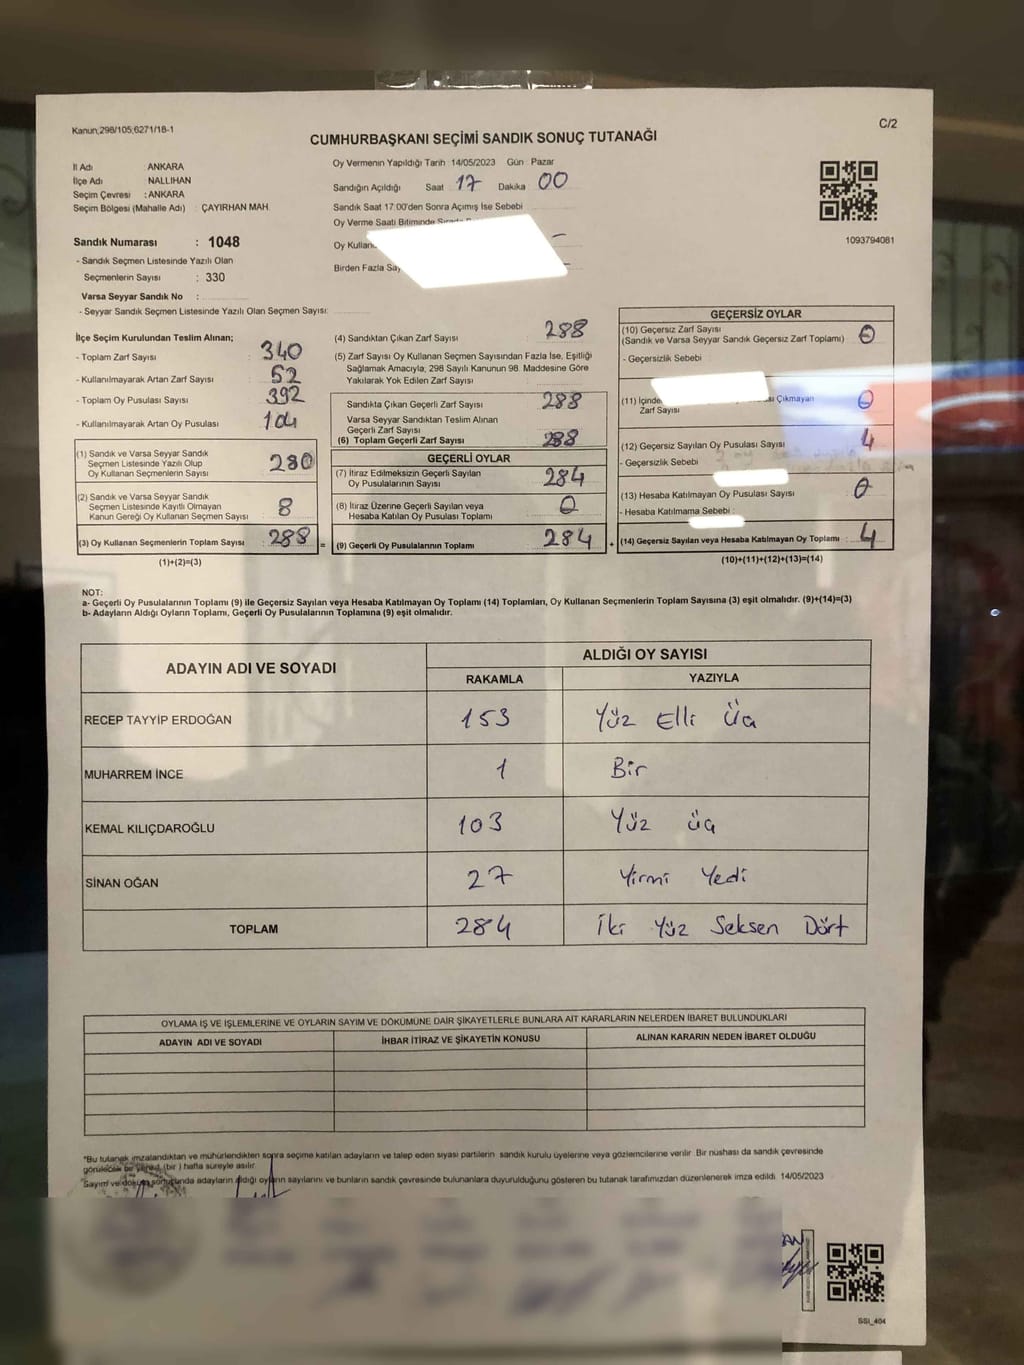 Kanun;298/105;6271/18-1
C/2
CUMHURBAŞKANI SEÇİMİ SANDIK SONUÇ TUTANAĞI
İl Adı : ANKARA
İlçe Adı : NALLIHAN
Seçim Çevresi : ANKARA
Seçim Bölgesi (Mahalle Adı) : ÇAYIRHAN MAH.
Sandık Numarası : 1048
- Sandık Seçmen Listesinde Yazılı Olan
Seçmenlerin Sayısı : 330
Varsa Seyyar Sandık No :
- Seyyar Sandık Seçmen Listesinde Yazılı Olan Seçmen Sayısı:
Oy Vermenin Yapıldığı Tarih :14/05/2023 Gün : Pazar
Sandığın Açıldığı Saat 17 Dakika 00
Sandık Saat 17:00'den Sonra Açımış İse Sebebi
Oy Verme Saati Bitiminde
Oy
Birden Fazla
1093794081
İlçe Seçim Kurulundan Teslim Alınan;
- Toplam Zarf Sayısı : 340
- Kullanılmayarak Artan Zarf Sayısı : 52
- Toplam Oy Pusulası Sayısı : 392
- Kullanılmayarak Artan Oy Pusulası : 104
(1) Sandık ve Varsa Seyyar Sandık
Seçmen Listesinde Yazılı Olup
Oy Kullanan Seçmenlerin Sayısı : 280
(2) Sandık ve Varsa Seyyar Sandık
Seçmen Listesinde Kayıtlı Olmayan
Kanun Gereği Oy Kullanan Seçmen Sayısı : 8
(3) Oy Kullanan Seçmenlerin Toplam Sayısı : 288 =
(1)+(2)=(3)
(4) Sandıktan Çıkan Zarf Sayısı : 288
(5) Zarf Sayısı Oy Kullanan Seçmen Sayısından Fazla İse, Eşitliği
Sağlamak Amacıyla, 298 Sayılı Kanunun 98. Maddesine Göre
Yakılarak Yok Edilen Zarf Sayısı :
Sandıkta Çıkan Geçerli Zarf Sayısı : 288
Varsa Seyyar Sandıktan Teslim Alınan
Geçerli Zarf Sayısı :
(6) Toplam Geçerli Zarf Sayısı : 288
GEÇERLİ OYLAR
(7) İtiraz Edilmeksizin Geçerli Sayılan
Oy Pusulalarının Sayısı : 284
(8) İtiraz Üzerine Geçerli Sayılan veya
Hesaba Katılan Oy Pusulası Toplamı : 0
(9) Geçerli Oy Pusulalarının Toplamı : 284 +
GEÇERSİZ OYLAR
(10) Geçersiz Zarf Sayısı
(Sandık ve Varsa Seyyar Sandık Geçersiz Zarf Toplamı) : 0
- Geçersizlik Sebebi :
(11) Çıkmayan
Zarf Sayısı : 0
(12) Geçersiz Sayılan Oy Pusulası Sayısı : 4
- Geçersizlik Sebebi :
(13) Hesaba Katılmayan Oy Pusulası Sayısı : 0
- Hesaba Katılmama Sebebi :
(14) Geçersiz Sayılan veya Hesaba Katılmayan Oy Toplamı : 4
(10)+(11)+(12)+(13)=(14)
NOT:
a- Geçerli Oy Pusulalarının Toplamı (9) ile Geçersiz Sayılan veya Hesaba Katılmayan Oy Toplamı (14) Toplamları, Oy Kullanan Seçmenlerin Toplam Sayısına (3) eşit olmalıdır. (9)+(14)=(3)
b- Adayların Aldığı Oyların Toplamı, Geçerli Oy Pusulalarının Toplamına (9) eşit olmalıdır.
ADAYIN ADI VE SOYADI
ALDIĞI OY SAYISI
RAKAMLA YAZIYLA
RECEP TAYYİP ERDOĞAN 153 Yüz Elli Üç
MUHARREM İNCE 1 Bir
KEMAL KILIÇDAROĞLU 103 Yüz üç
SİNAN OĞAN 27 Yirmi Yedi
TOPLAM 284 İki Yüz Seksen Dört
OYLAMA İŞ VE İŞLEMLERİNE VE OYLARIN SAYIM VE DÖKÜMÜNE DAİR ŞİKAYETLERLE BUNLARA AİT KARARLARIN NELERDEN İBARET BULUNDUKLARI
ADAYIN ADI VE SOYADI İHBAR İTİRAZ VE ŞİKAYETİN KONUSU ALINAN KARARIN NEDEN İBARET OLDUĞU
*Bu tutanak imzalandıktan ve mühürlendikten sonra seçime katılan adayların ve talep eden siyasi partilerin sandık kurulu üyelerine veya gözlemcilerine verilir. Bir nüshası da sandık çevresinde
görülecek bir yere (bir) hafta süreyle asılır.
*Sayım ve döküm sonucunda adayların aldığı oyların sayılarını ve bunların sandık çevresinde bulunanlara duyurulduğunu gösteren bu tutanak tarafımızdan düzenlenerek imza edildi. 14/05/2023
SSI_404